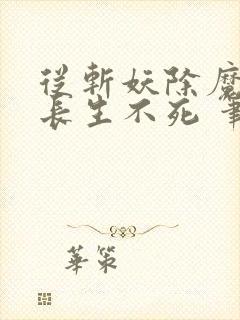 從斬妖除魔
長生不死
華策